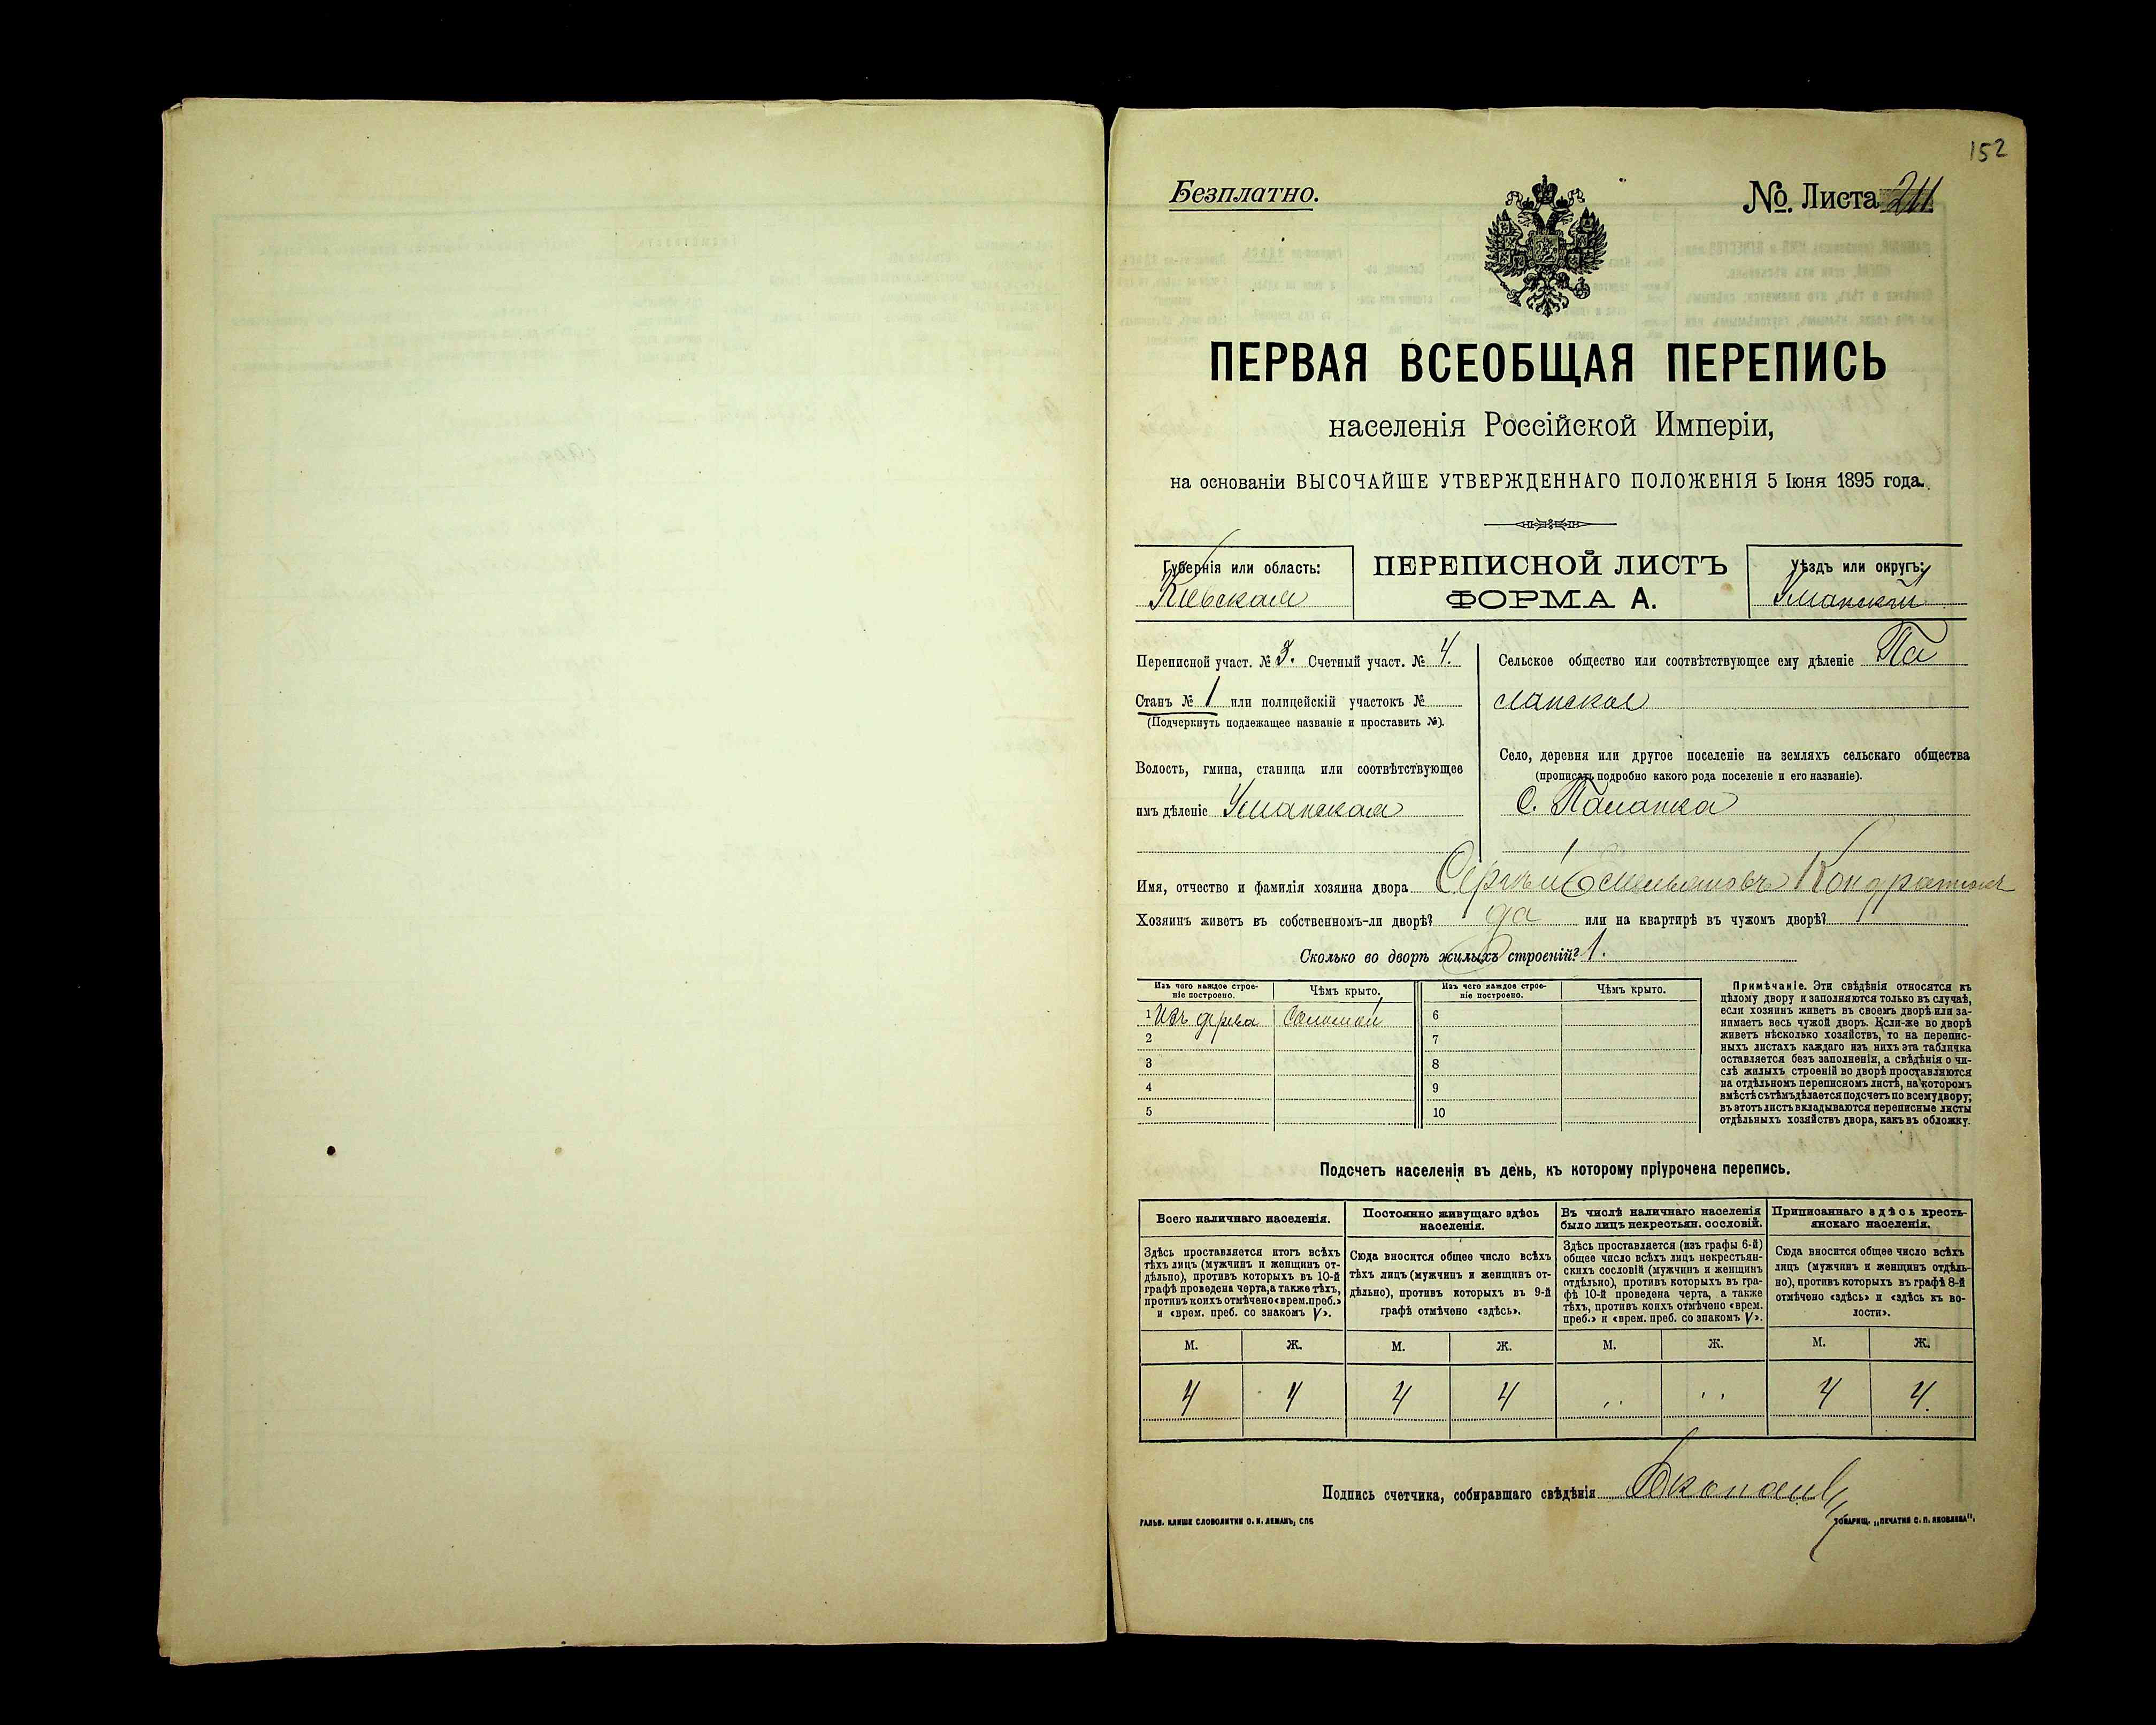 152
Безплатно.
№ Листа 211
ПЕРВАЯ ВСЕОБЩАЯ ПЕРЕПИСЬ
населенія Россійской Имперіи,
на основаніи ВЫСОЧАЙШЕ УТВЕРЖДЕННАГО ПОЛОЖЕНІЯ 5 Іюня 1895 года.
Губернія или область:
Кіевская
ПЕРЕПИСНОЙ ЛИСТЪ
ФОРМА А.
Уѣздъ или округъ:
Уманскій
Переписной участ. № 3. Счетный участ. № 4.
Станъ № 1 или полицейскій участокъ №
(Подчеркнуть подлежащее названіе и проставить №).
Волость, гмина, станица или соотвѣтствующее
имъ дѣленіе Уманская
Сельское общество или соотвѣтствующее ему дѣленіе Па
ланское
Село, деревня или другое поселеніе на земляхъ сельскаго общества
(прописать подробно какого рода поселеніе и его названіе).
С. Паланка
Имя, отчество и фамилія хозяина двора Сергѣй Емельяновъ Кондратюкъ
Хозяинъ живетъ въ собственномъ-ли дворѣ? да или на квартирѣ въ чужомъ дворѣ?
Сколько во дворѣ жилыхъ строеній? 1.
Изъ чего каждое строе-
ніе построено.
Чѣмъ крыто.
Изъ чего каждое строе-
ніе построено.
Чѣмъ крыто.
1 Изъ дерева Соломой
2
3
4
5
6
7
8
9
10
Примѣчаніе. Эти свѣдѣнія относятся къ
цѣлому двору и заполняются только въ случаѣ,
если хозяинъ живетъ въ своемъ дворѣ или за-
нимаетъ весь чужой дворъ. Если-же во дворѣ
живетъ нѣсколько хозяйствъ, то на перепис-
ныхъ листахъ каждаго изъ нихъ эта табличка
оставляется безъ заполненія, а свѣдѣнія о чи-
слѣ жилыхъ строеній во дворѣ проставляются
на отдѣльномъ переписномъ листѣ, на которомъ
вмѣстѣ съ тѣмъ дѣлается подсчетъ по всему двору;
въ этотъ листъ вкладываются переписные листы
отдѣльныхъ хозяйствъ двора, какъ въ обложку.
Подсчетъ населенія въ день, къ которому пріурочена перепись.
Всего наличнаго населенія.
Здѣсь проставляется итогъ всѣхъ
тѣхъ лицъ (мужчинъ и женщинъ от-
дѣльно), противъ которыхъ въ 10-й
графѣ проведена черта, а также тѣхъ,
противъ коихъ отмѣчено «врем. преб.»
и «врем. преб. со знакомъ V».
Постоянно живущаго здѣсь
населенія.
Сюда вносится общее число всѣхъ
тѣхъ лицъ (мужчинъ и женщинъ от-
дѣльно), противъ которыхъ въ 9-й
графѣ отмѣчено «здѣсь».
Въ числѣ наличнаго населенія
было лицъ некрестьян. сословій.
Здѣсь проставляется (изъ графы 6-й)
общее число всѣхъ лицъ некрестьян-
скихъ сословій (мужчинъ и женщинъ
отдѣльно), противъ которыхъ въ гра-
фѣ 10-й проведена черта, а также
тѣхъ, противъ коихъ отмѣчено «врем.
преб.» и «врем. преб. со знакомъ V».
Приписаннаго здѣсь кресть-
янскаго населенія.
Сюда вносится общее число всѣхъ
лицъ (мужчинъ и женщинъ отдѣль-
но), противъ которыхъ въ графѣ 8-й
отмѣчено «здѣсь» и «здѣсь къ во-
лости».
М. Ж. М. Ж. М. Ж. М. Ж.
4 4 4 4 .. .. 4 4.
Подпись счетчика, собиравшаго свѣдѣнія
ГАЛЬВ. КЛИШЕ СЛОВОЛИТНИ О. И. ЛЕМАНЪ, СПБ
ТОВАРИЩ. „ПЕЧАТНЯ С. П. ЯКОВЛЕВА".